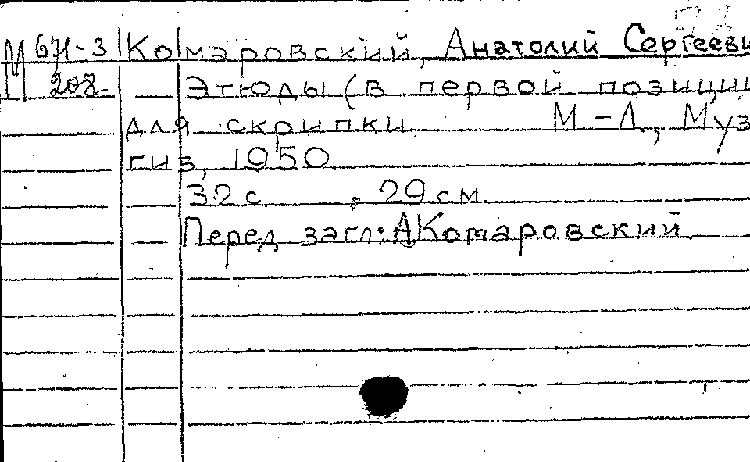 М 671-3 Комаровский, Анатолий Сергееви
208 Этюды (в первой позиции
для скрипки М-Л, Муз
гиз, 1950
32 с , 29 см
Перед загл: А Комаровский